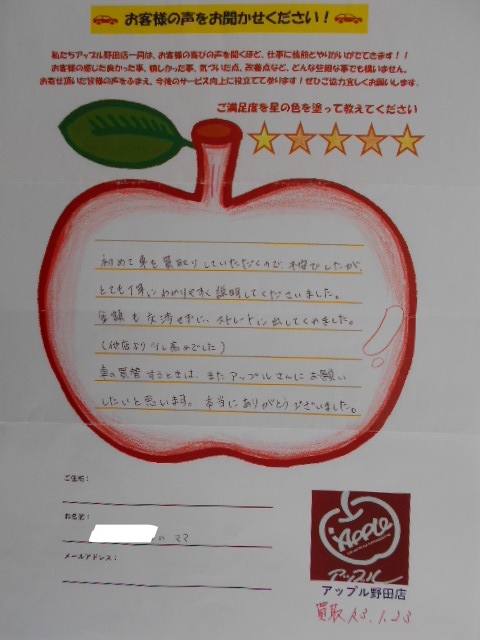 お客様の声をお聞かせください！
私たちアップル野田店一同は、お客様の喜びの声を聞くほど、仕事に情熱とやりがいがでてきます！！
お客様の感じた良かった事、嬉しかった事、気づいた点、改善点など、どんな些細な事でも構いません。
お寄せ頂いた皆様の声をふまえ、今後のサービス向上に役立てて参ります！ぜひご協力宜しくお願いします。
ご満足度を星の色を塗って教えてください
初めて車を買取りしていただくので、不安でしたが、
とても丁寧にわかりやすく説明してくださいました。
金額も交渉せずに、ストレートに出してくれました。
(他店より少し高めでした)
車の買替するときは、またアップルさんにお願い
したいと思います。本当にありがとうございました。
ご住所：
お名前：
の ママ
メールアドレス：
APPLE
アップル
アップル野田店
買取 R3.1.23